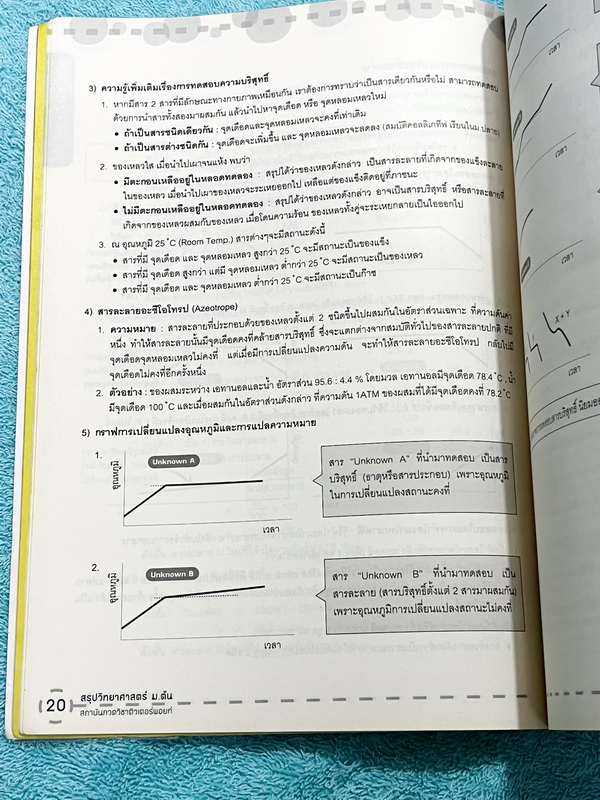 3) ความรู้เพิ่มเติมเรื่องการทดสอบความบริสุทธิ์
1. หากมีสาร 2 สารที่มีลักษณะทางกายภาพเหมือนกัน เราต้องการทราบว่าเป็นสารเดียวกันหรือไม่ สามารถทดสอบ
ด้วยการนำสารทั้งสองมาผสมกัน แล้วนำไปหาจุดเดือด หรือ จุดหลอมเหลวใหม่
• ถ้าเป็นสารชนิดเดียวกัน : จุดเดือดและจุดหลอมเหลวจะคงที่เท่าเดิม
• ถ้าเป็นสารต่างชนิดกัน : จุดเดือดจะเพิ่มขึ้น และ จุดหลอมเหลวจะลดลง (สมบัติคอลลิเกทีฟ เรียนใน ม.ปลาย)
2. ของเหลวใส เมื่อนำไปเผาจนแห้ง พบว่า
• มีตะกอนเหลืออยู่ในหลอดทดลอง : สรุปได้ว่าของเหลวดังกล่าว เป็นสารละลายที่เกิดจากของแข็งละลาย
ในของเหลว เมื่อนำไปเผาของเหลวจะระเหยออกไป เหลือแต่ของแข็งติดอยู่ที่ภาชนะ
• ไม่มีตะกอนเหลืออยู่ในหลอดทดลอง : สรุปได้ว่าของเหลวดังกล่าว อาจเป็นสารบริสุทธิ์ หรือสารละลายที่
เกิดจากของเหลวผสมกับของเหลว เมื่อโดนความร้อน ของเหลวทั้งคู่จะระเหยกลายเป็นไอออกไป
3. ณ อุณหภูมิ 25 ˚C (Room Temp.) สารต่างๆจะมีสถานะดังนี้
• สารที่มี จุดเดือด และ จุดหลอมเหลว สูงกว่า 25 ˚C จะมีสถานะเป็นของแข็ง
• สารที่มี จุดเดือด สูงกว่า แต่มี จุดหลอมเหลว ต่ำกว่า 25 ˚C จะมีสถานะเป็นของเหลว
• สารที่มี จุดเดือด และ จุดหลอมเหลว ต่ำกว่า 25 ˚C จะมีสถานะเป็นก๊าซ
4) สารละลายอะซีโอโทรป (Azeotrope)
1. ความหมาย : สารละลายที่ประกอบด้วยของเหลวตั้งแต่ 2 ชนิดขึ้นไปผสมกันในอัตราส่วนเฉพาะ ที่ความดันค่า
หนึ่ง ทำให้สารละลายนั้นมีจุดเดือดคงที่คล้ายสารบริสุทธิ์ ซึ่งจะแตกต่างจากสมบัติทั่วไปของสารละลายปกติ ที่มี
จุดเดือดจุดหลอมเหลวไม่คงที่ แต่เมื่อมีการเปลี่ยนแปลงความดัน จะทำให้สารละลายอะซีโอโทรป กลับไปมี
จุดเดือดไม่คงที่อีกครั้งหนึ่ง
2. ตัวอย่าง : ของผสมระหว่าง เอทานอลและน้ำ อัตราส่วน 95.6 : 4.4 % โดยมวล เอทานอลมีจุดเดือด 78.4 ˚C , น้ำ
มีจุดเดือด 100 ˚C และเมื่อผสมกันในอัตราส่วนดังกล่าว ที่ความดัน 1ATM ของผสมที่ได้มีจุดเดือดคงที่ 78.2 ˚C
5) กราฟการเปลี่ยนแปลงอุณหภูมิและการแปลความหมาย
1.
อุณหภูมิ
Unknown A
เวลา
สาร "Unknown A" ที่นำมาทดสอบ เป็นสาร
บริสุทธิ์ (ธาตุหรือสารประกอบ) เพราะอุณหภูมิ
ในการเปลี่ยนแปลงสถานะคงที่
2.
อุณหภูมิ
Unknown B
เวลา
สาร "Unknown B" ที่นำมาทดสอบ เป็น
สารละลาย (สารบริสุทธิ์ตั้งแต่ 2 สารมาผสมกัน)
เพราะอุณหภูมิการเปลี่ยนแปลงสถานะไม่คงที่
20
สรุปวิทยาศาสตร์ ม.ต้น
สถาบันกวดวิชาติวเตอร์พอยท์
เวลา
เวลา
X + Y
เวลา